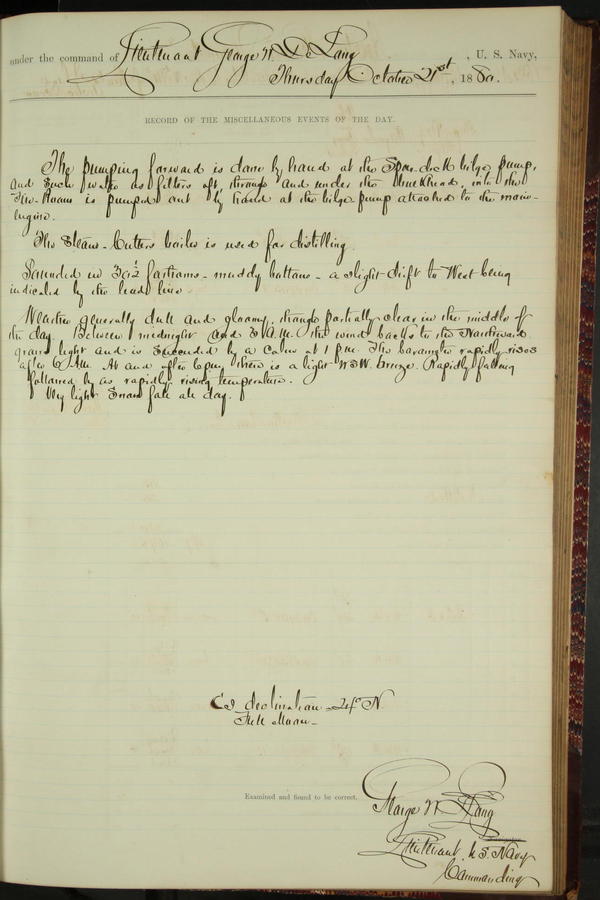 under the command of Lieutenant George W. De Long, U. S. Navy,
Thursday October 21st, 1880.
RECORD OF THE MISCELLANEOUS EVENTS OF THE DAY.
The pumping forward is done by hand at the Spar-deck bilge pump,
and such water as filters aft through and under the bulkhead, into the
Fire-Room is pumped out by hand at the bilge pump attached to the main-
engine.
The Steam-Cutters boiler is used for distilling.
Sounded in 30½ fathoms - muddy bottom - a slight drift to West being
indicated by the lead line
Weather generally dull and gloomy, though partially clear in the middle of
the day. Between midnight and 3 A.M. the wind backs to the Northward
grows light and is succeeded by a calm at 1 p.m. The barometer rapidly rises
after 6 A.M. At and after 6 p.m. there is a light NSW. breeze. Rapidly falling
followed by as rapidly rising temperature.
Very light Snow fall all day.
declination 24° N
Full Moon -
Examined and found to be correct.
George W. De Long
Lieutenant U.S. Navy
Commanding